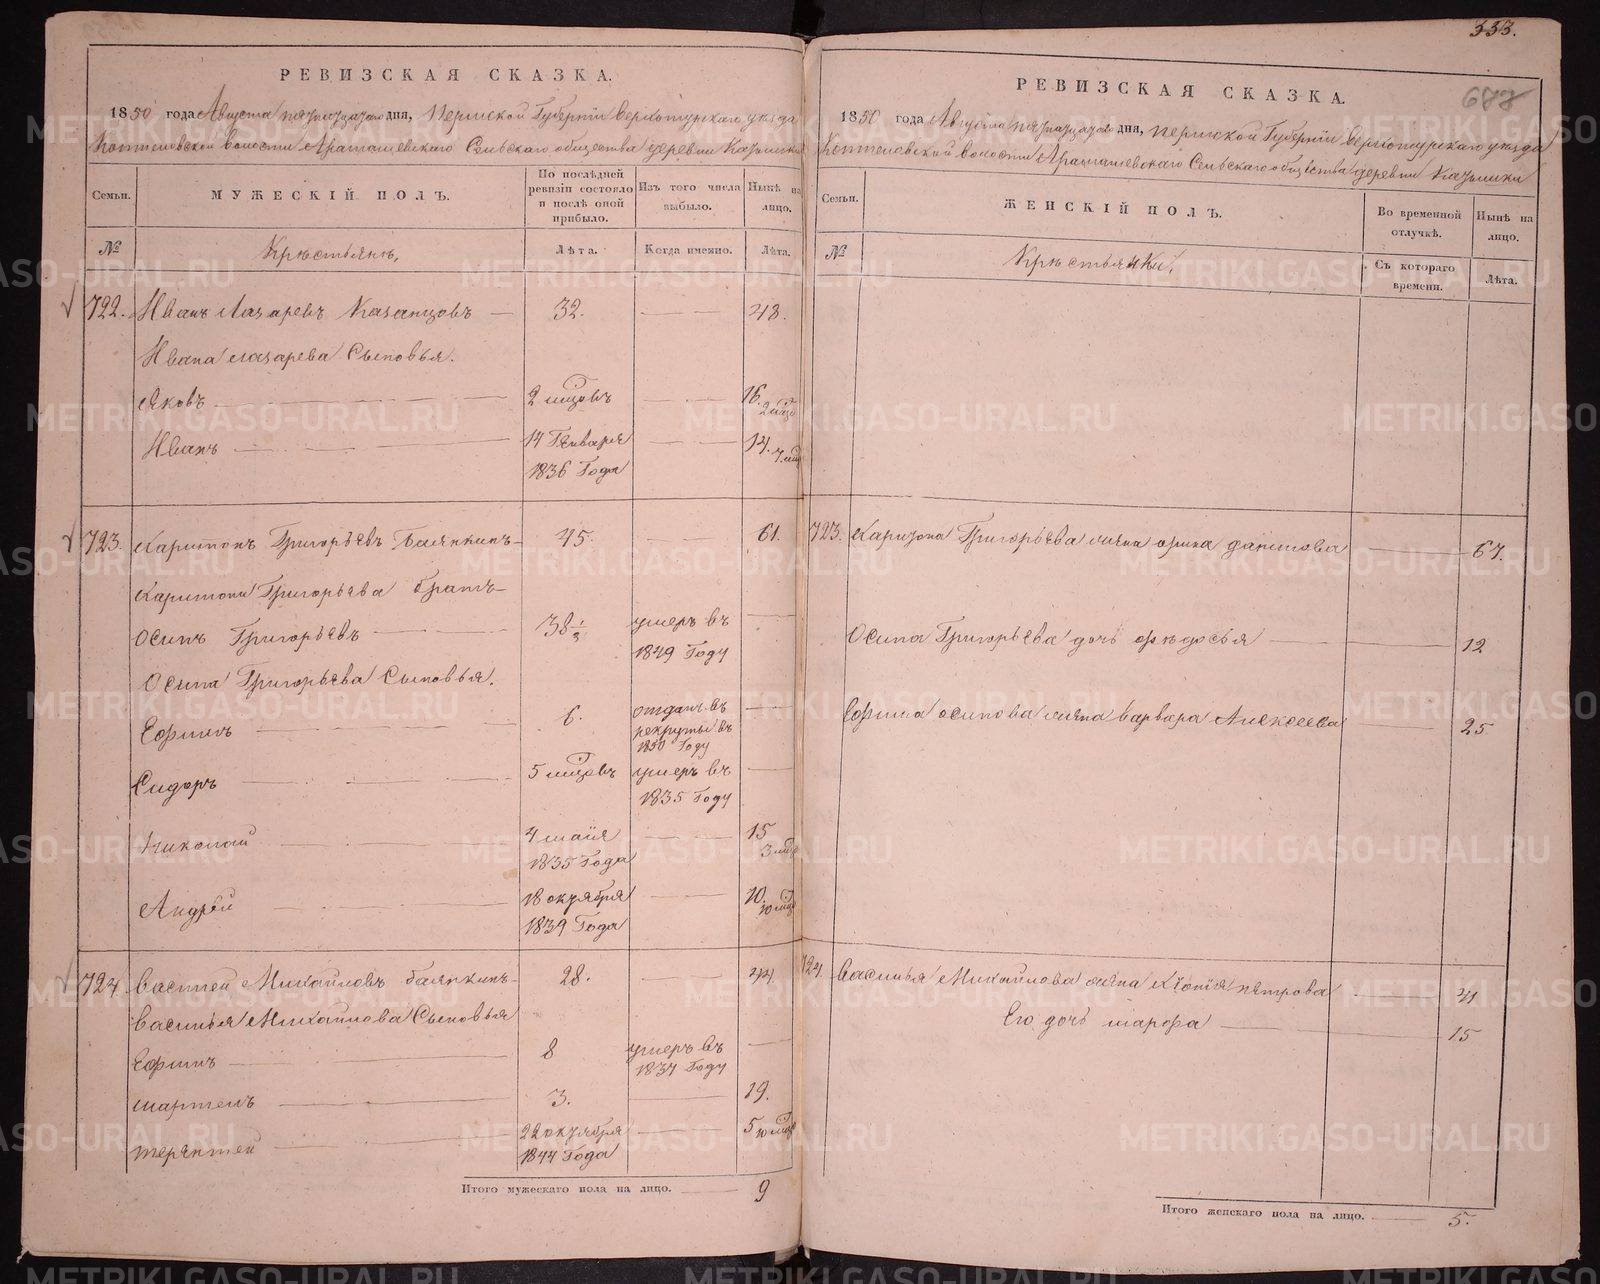 333.
687
РЕВИЗСКАЯ СКАЗКА.
1850 года Августа пятнадцатого дня, Пермской Губернiи Верхотурскаго уезда
волости Сельскаго общества деревни
Семьи.
МУЖЕСКIЙ ПОЛЪ.
По послѣдней ревизiи состояло и послѣ оной прибыло.
Изъ того числа выбыло.
Нынѣ на лицо.
№
Крѣстьянѣ,
Лѣта.
Когда именно.
Лѣта.
722. Иванъ Лазаревъ Казанцовъ — 32. — 48.
Ивана Лазарева Сыновья.
Яковъ — 2 мѣцовъ — 16. 2 мѣцо
Иванъ — 14 Января 1836 Года — 14. 7 мѣц
723. Харитонъ Григорьевъ Балякинъ — 45. — 61.
Харитона Григорьева братъ —
Осипъ Григорьевъ — 38 1/2 умеръ въ 1849 Году —
Осипа Григорьева Сыновья.
Ефимъ — 6. отданъ въ рекруты въ 1850 Году —
Сидоръ — 5 мѣцовъ умеръ въ 1835 Году —
Николай 4 маiя 1835 Года — 15 3 мѣц
Андрей — 18 октября 1839 Года — 10. 10 мѣц
724. Василей Михайловъ Балякинъ — 28. — 44.
Василья Михайлова Сыновья
Ефимъ — 8 умеръ въ 1837 Году —
Мартенъ — 3. — 19.
Терентей — 22 октября 1844 Года — 5 10 мѣц
Итого мужескаго пола на лицо. — 9
РЕВИЗСКАЯ СКАЗКА.
1850 года Августа пятнадцатого дня, Пермской Губернiи Верхотурскаго уезда
волости Сельскаго общества деревни
Семьи.
ЖЕНСКIЙ ПОЛЪ.
Во временной отлучкѣ.
Нынѣ на лицо.
№
Крѣстьянки,
Съ котораго времени.
Лѣта.
723. Харитона Григорьева жена Данилова — 67.
Осипа Григорьева дочь Федосья — 12
Ефима Осипова жена Варвара Алексеева — 25
724. Василья Михайлова жена Петрова — 41
Его дочь Марфа — 15
Итого женскаго пола на лицо. — 5.
METRIKI.GASO-URAL.RU